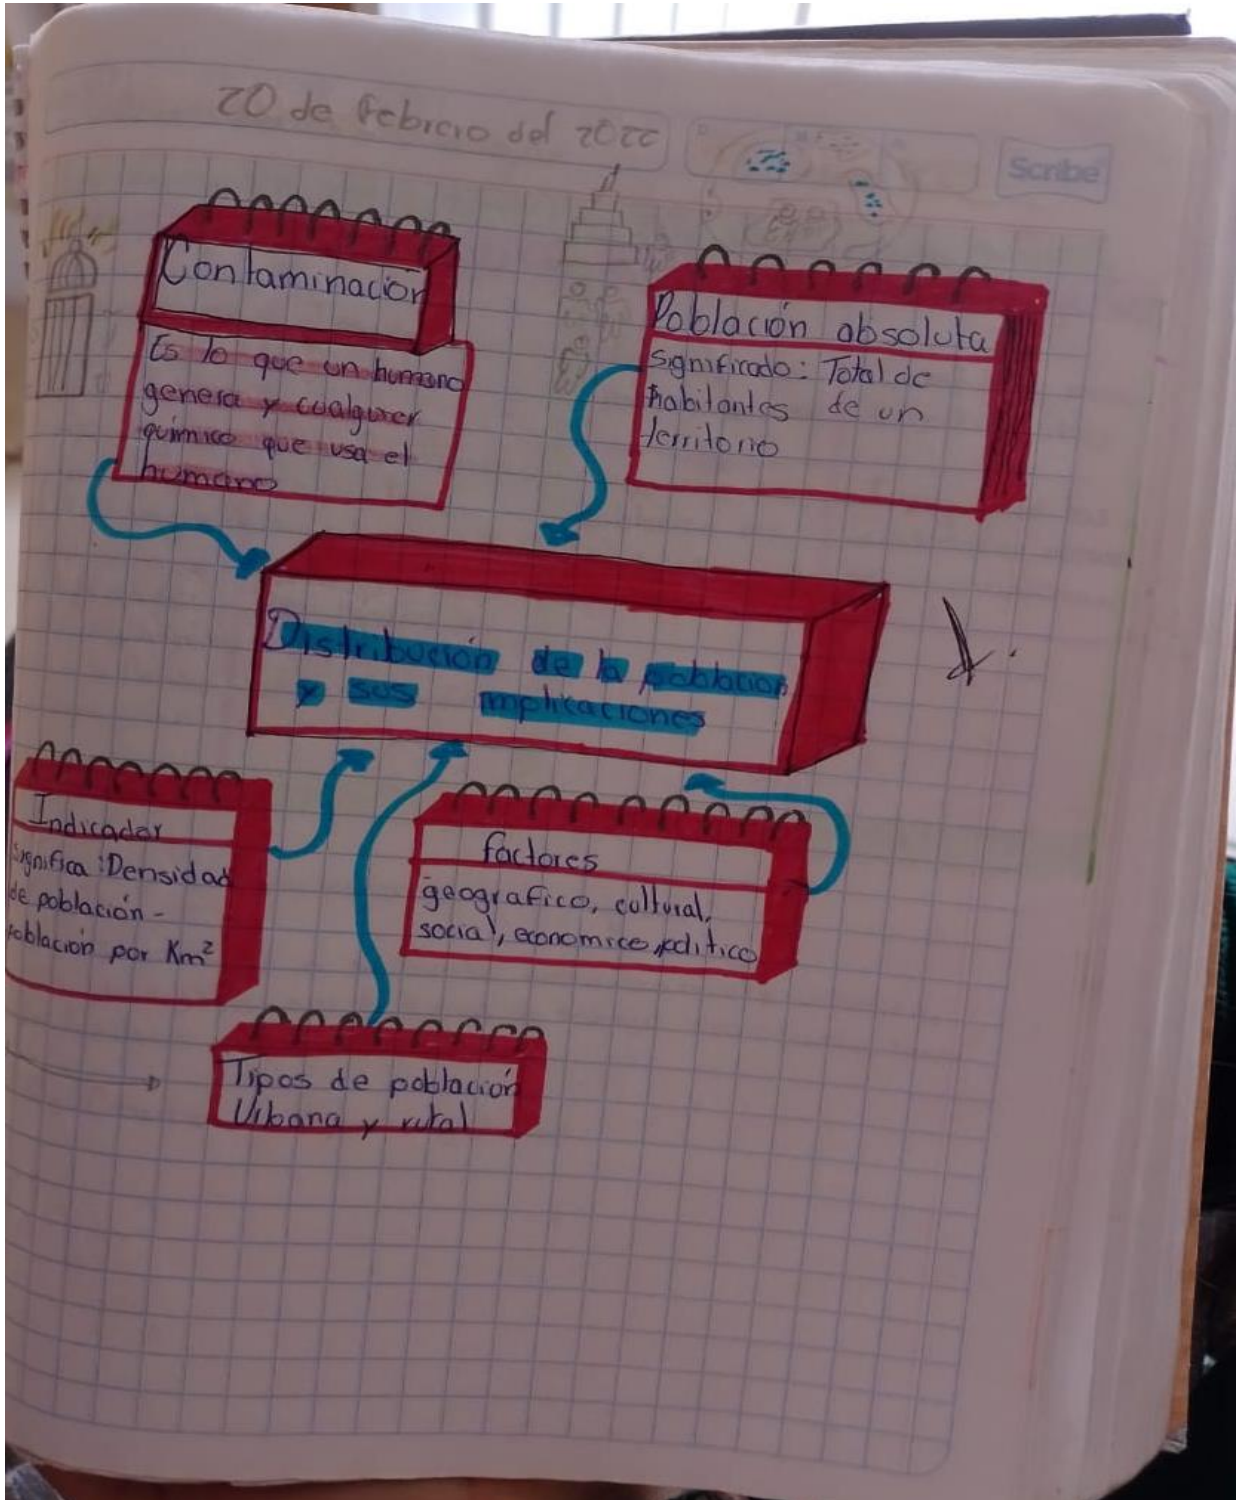 20 de febrero del 2022
Scribe
Contaminación
Es lo que un humano
genera y cualquier
químico que usa el
humano
Población absoluta
significado: Total de
habitantes de un
territorio
Distribución de la población
y sus implicaciones
Indicador
significa: Densidad
de población -
población por Km²
factores
geografico, cultural,
social, economico, politico
Tipos de población
Urbana y rural